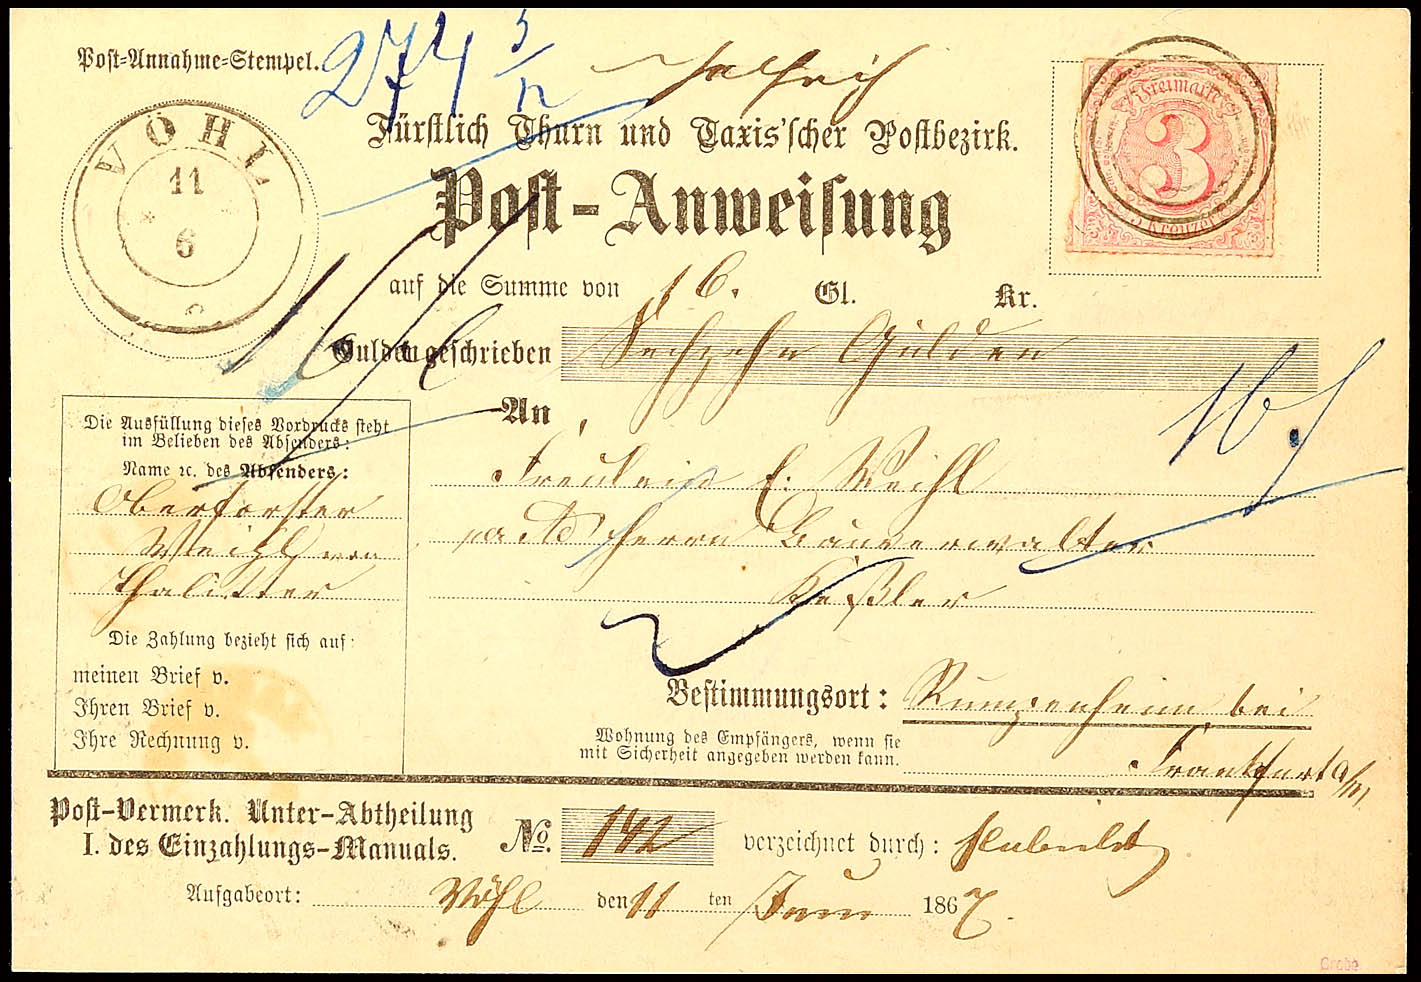 Post-Annahme-Stempel.
274 3/12
VÖHL
11
6
Fürstlich Thurn und Taxis'scher Postbezirk.
Freimarke
3
Kreuzer
Post-Anweisung
auf die Summe von 16. Gl. Kr.
Gulden geschrieben Sechzehn Gulden
16
An
Die Ausfüllung dieses Vordrucks steht
im Belieben des Absenders:
Name ꝛc. des Absenders:
Oberförster
Weihl von
Thalitter
Fräulein E. Weihl
Herrn Bauverwalter
Keßler
Die Zahlung bezieht sich auf:
meinen Brief v.
Ihren Brief v.
Ihre Rechnung v.
Bestimmungsort: Rumpenheim bei
Frankfurt a/M
Wohnung des Empfängers, wenn sie
mit Sicherheit angegeben werden kann.
Post-Vermerk. Unter-Abtheilung
I. des Einzahlungs-Manuals.
No. 142 verzeichnet durch:
Aufgabeort: Vöhl den 11 ten Juni 1867.
Grobe